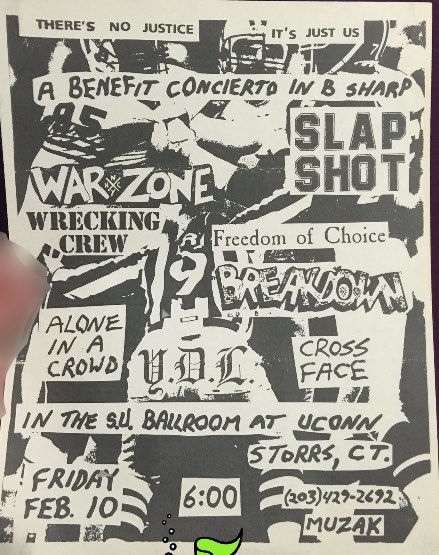 THERE'S NO JUSTICE IT'S JUST US
A BENEFIT CONCIERTO IN B SHARP
85
SLAP
SHOT
WARZONE
WRECKING
CREW
Freedom of Choice
19
BREAKDOWN
ALONE
IN A
CROWD
Y.D.L.
CROSS
FACE
IN THE S.U. BALLROOM AT UCONN
STORRS, CT.
FRIDAY
FEB. 10
6:00
(203)429-2692
MUZAK